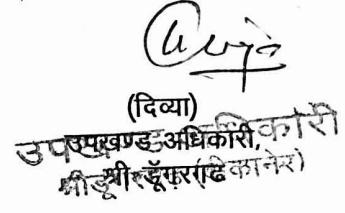 (दिव्या)
उपखण्ड अधिकारी,
श्रीडूँगरगढ
उपखण्ड अधिकारी
श्रीडूंगरगढ़ (बीकानेर)